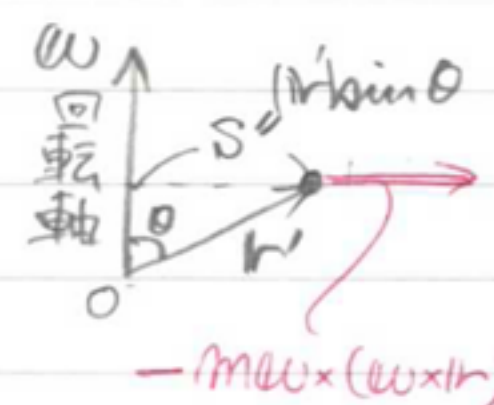 ω
回転軸
S' |r'|sin θ
θ
r'
O
− mω×(ω×r